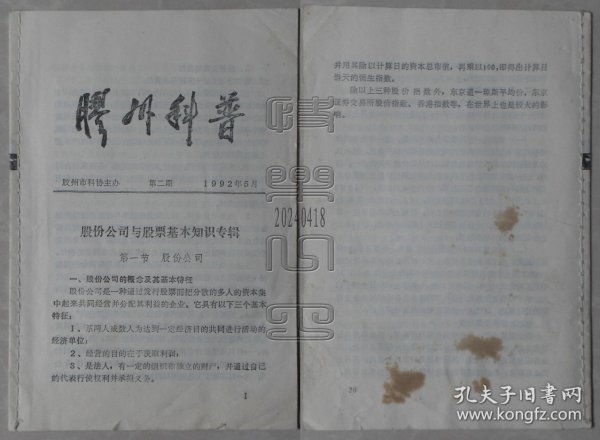 膠州科普
胶州市科协主办 第二期 1992年5月
股份公司与股票基本知识专辑
第一节 股份公司
一、股份公司的概念及其基本特征
股份公司是一种通过发行股票而把分散的多人的资本集
中起来共同经营并分配其利益的企业。它具有以下三个基本
特征:
1、系两人或数人为达到一定经济目的共同进行活动的
经济单位;
2、经营的目的在于获取利润;
3、是法人,有一定的组织和独立的财产,并通过自己
的代表行使权利并承担义务。
1
并用其除以计算日的资本总市值,再乘以100,即得出计算日
当天的恒生指数。
除以上三种股价指数外,东京道一琼斯平均价,东京
证券交易所股价指数、香港指数等,在世界上也是较大的影
响。
20
20240418
孔夫子旧书网
www.kongfz.com